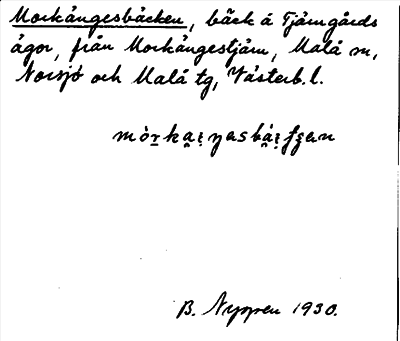 Morkängesbäcken, bäck å Tjärngårds
ägor, från Morkängestjärn, Malå sn,
Norsjö och Malå tg, Västerb. l.
B. Nyppen 1930.